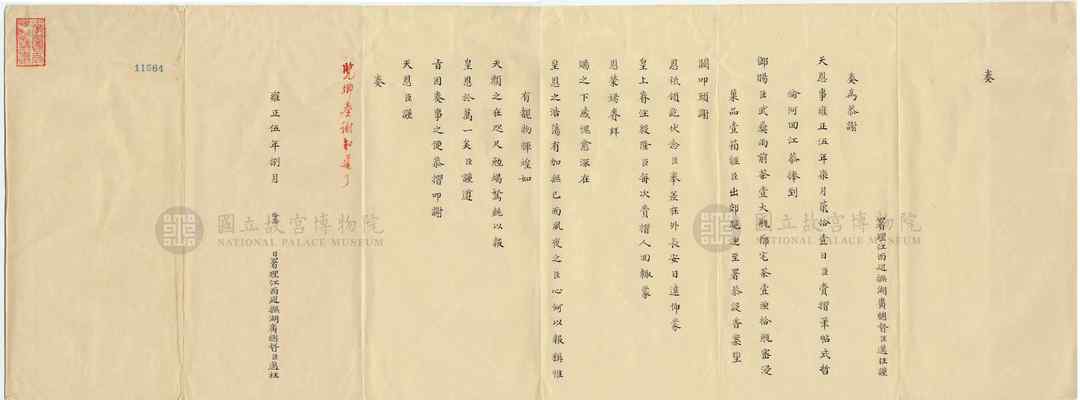 奏
署理江西巡撫湖廣總督臣邁柱謹
奏為恭謝
天恩事雍正伍年柒月貳拾壹日臣賫摺筆帖式哲
爾河回江恭捧到
御賜臣武彝雨前茶壹大瓶鄭宅茶壹拾瓶蜜浸
菓品壹箱經臣出郊跪迎至署恭設香案望
闕叩頭謝
恩祗領訖伏念臣奉差在外長安日遠仰蒙
皇上眷注殷隆臣每次賫摺人回輒蒙
恩榮誇眷鮮
賜之下感愧愈深在
皇恩之浩蕩有加無已而夙夜之臣心何以報稱惟
有覩物輝煌如
天顏之在咫尺勉竭駑鈍以報
皇恩於萬一矣臣謹遵
旨因奏事之便恭摺叩謝
天恩臣謹
奏
覽卿奏謝知道了
雍正伍年捌月
日署理江西巡撫湖廣總督臣邁柱
11564
國立故宮博物院
NATIONAL PALACE MUSEUM
國立故宮博物院
NATIONAL PALACE MUSEUM